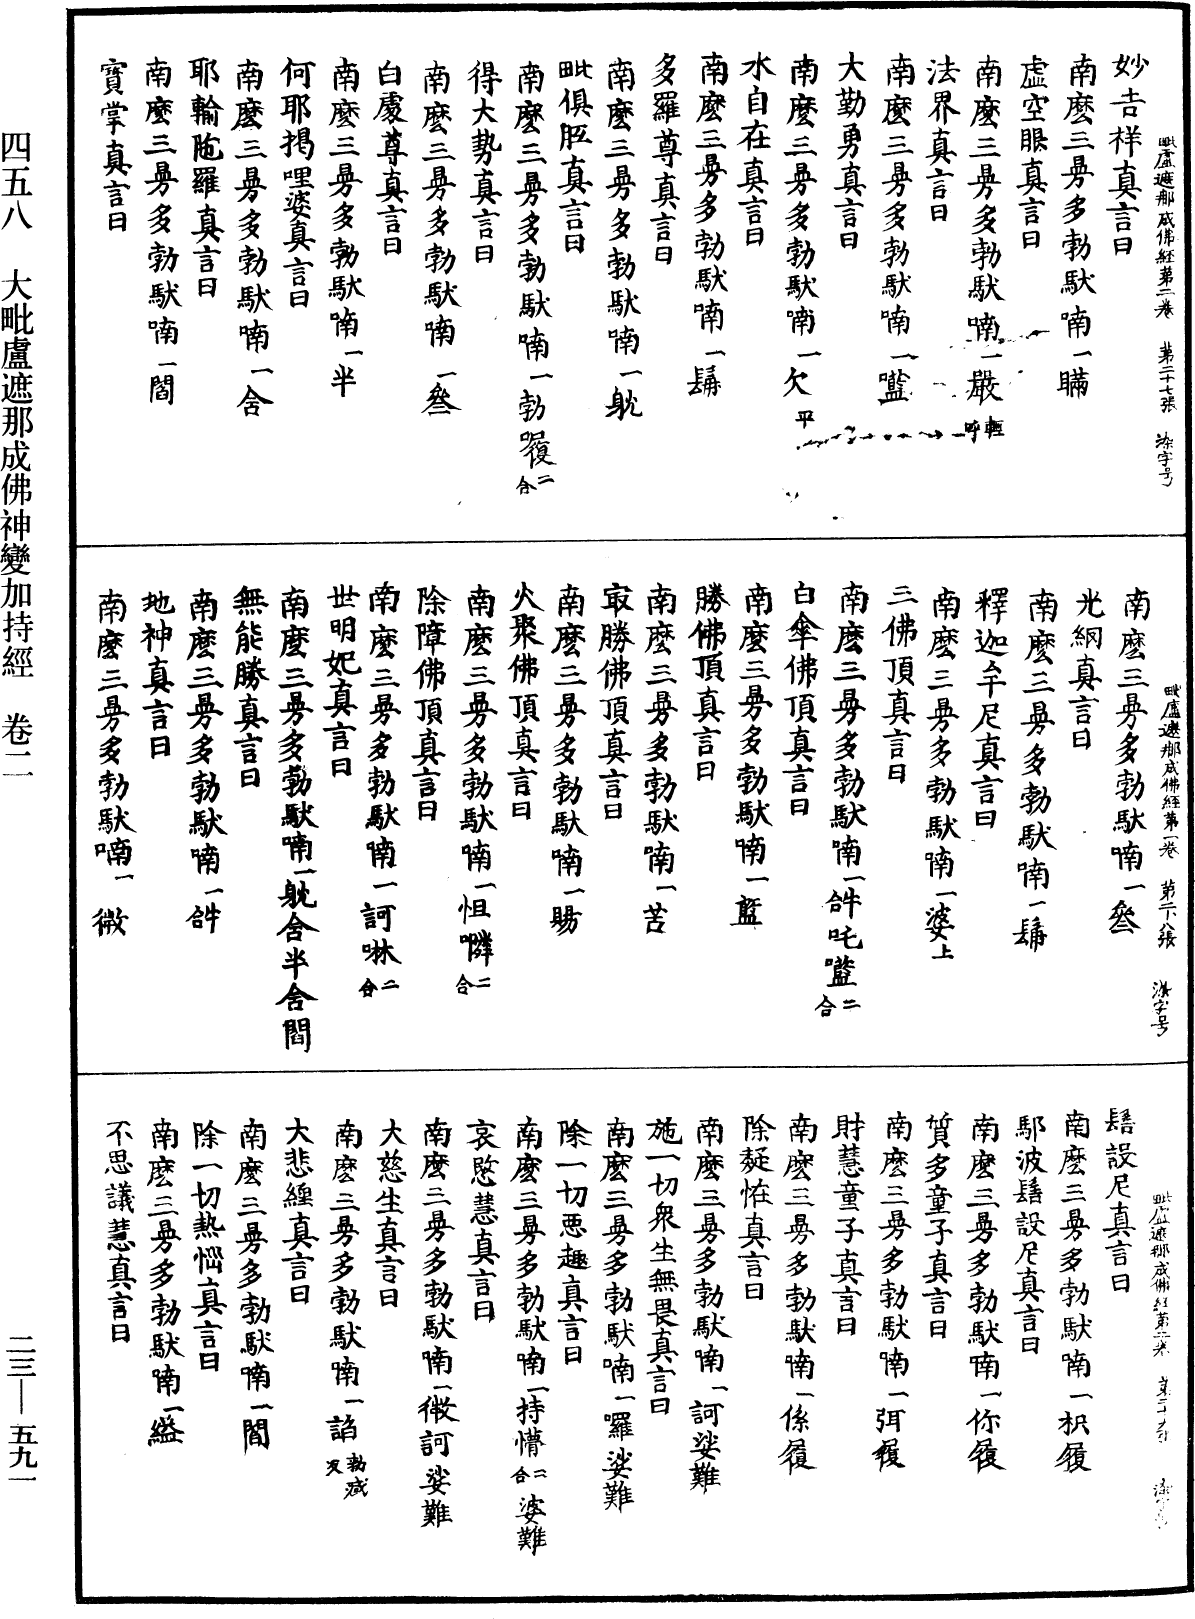 毗盧遮那成佛經第二卷 第二十七張 染字号
妙吉祥真言曰
南麽三曼多勃馱喃一瞞
虚空眼真言曰
南麽三曼多勃馱喃一嚴輕呼
法界真言曰
南麽三曼多勃馱喃一㘕
大勤勇真言曰
南麽三曼多勃馱喃一欠平
水自在真言曰
南麽三曼多勃馱喃一髯
多羅尊真言曰
南麽三曼多勃馱喃一躭
毗俱胝真言曰
南麽三曼多勃馱喃一勃㘑二合
得大勢真言曰
南麽三曼多勃馱喃一叄
白處尊真言曰
南麽三曼多勃馱喃一半
何耶揭哩婆真言曰
南麽三曼多勃馱喃一含
耶輸陁羅真言曰
南麽三曼多勃馱喃一閻
寶掌真言曰
毗盧遮那成佛經第二卷 第二十八張 染字号
南麽三曼多勃馱喃一叄
光網真言曰
南麽三曼多勃馱喃一髯
釋迦牟尼真言曰
南麽三曼多勃馱喃一婆上
三佛頂真言曰
南麽三曼多勃馱喃一㖃吒㘕二合
白傘佛頂真言曰
南麽三曼多勃馱喃一藍
勝佛頂真言曰
南麽三曼多勃馱喃一苫
㝡勝佛頂真言曰
南麽三曼多勃馱喃一賜
火聚佛頂真言曰
南麽三曼多勃馱喃一怛憐二合
除障佛頂真言曰
南麽三曼多勃馱喃一訶啉二合
世明妃真言曰
南麽三曼多勃馱喃一躭含半含閻
無能勝真言曰
南麽三曼多勃馱喃一㖃
地神真言曰
南麽三曼多勃馱喃一微
毗盧遮那成佛經第二卷 第二十九張 染字号
髻設尼真言曰
南麽三曼多勃馱喃一枳履
鄔波髻設尼真言曰
南麽三曼多勃馱喃一你履
質多童子真言曰
南麽三曼多勃馱喃一弭履
財慧童子真言曰
南麽三曼多勃馱喃一係履
除疑怪真言曰
南麽三曼多勃馱喃一訶娑難
施一切衆生無畏真言曰
南麽三曼多勃馱喃一囉娑難
除一切惡趣真言曰
南麽三曼多勃馱喃一特懵二合娑難
哀愍慧真言曰
南麽三曼多勃馱喃一微訶娑難
大慈生真言曰
南麽三曼多勃馱喃一諂勑感反
大悲纏真言曰
南麽三曼多勃馱喃一閻
除一切熱惱真言曰
南麽三曼多勃馱喃一縊
不思議慧真言曰
四五八 大毗盧遮那成佛神變加持經 卷二
二三—五九一